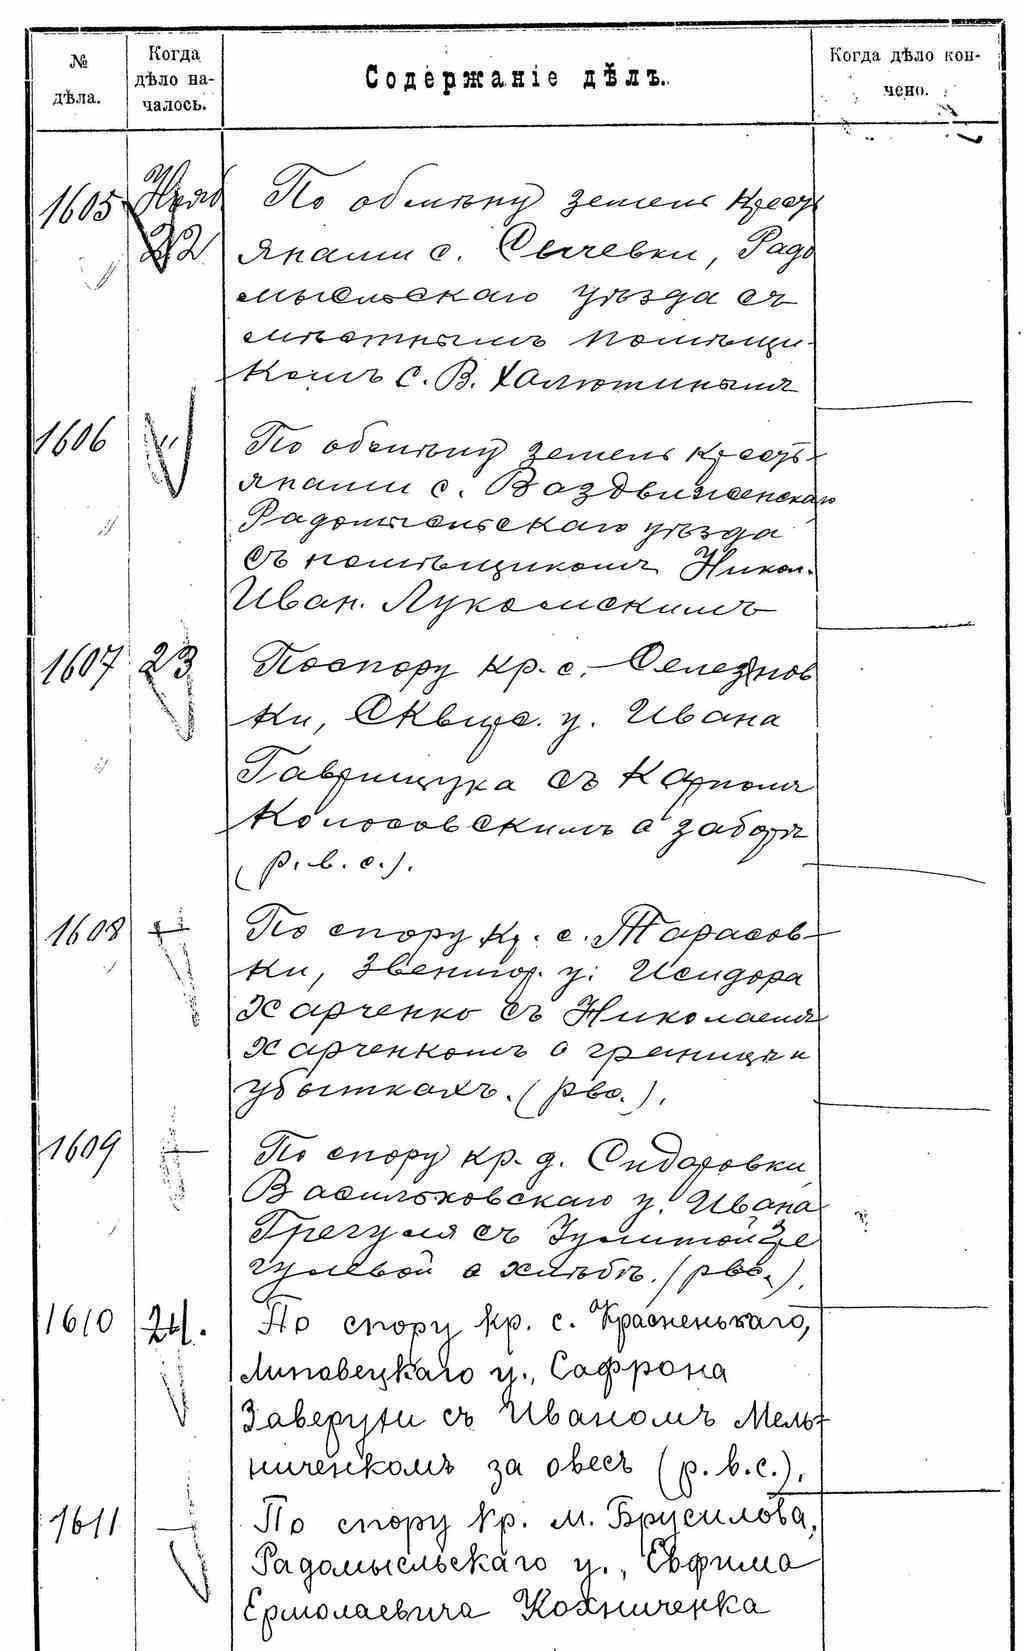 № дѣла.
Когда дѣло началось.
Содержаніе дѣлъ.
Когда дѣло кончено.
1605 Нояб 22
По обмѣну земель крестья
нами с. Сычевки, Радо
мысльскаго уѣзда съ
мѣстнымъ помѣщи-
комъ С. В. Халютинымъ
1606 "
По обмѣну земель кресть-
янами с. Воздвиженскаго
Радомысльскаго уѣзда
съ помѣщикомъ Никол.
Иван. Лукомскимъ
1607 23
По спору кр. с. Селезнов
ки, Сквирс. у. Ивана
Гаврищука съ Карпомъ
Колосовскимъ о заборѣ
(р. в. с.).
1608 —
По спору кр. с. Тарасов-
ки, Звениг. у. Исидора
Харченко съ Николаемъ
Харченкомъ о границѣ и
убыткахъ. (рвс.).
1609 —
По спору кр. д. Сидоровки
Васильковскаго у. Ивана
Грегуля съ Улитой Ге
гулевой о хлѣбѣ. (рвс.).
1610 24.
По спору кр. с. Красненькаго,
Липовецкаго у., Сафрона
Заверухи съ Иваномъ Мель-
ниченкомъ за овесъ (р. в. с.).
1611 —
По спору кр. м. Брусилова,
Радомысльскаго у., Евфима
Ермолаевича Кохниченка